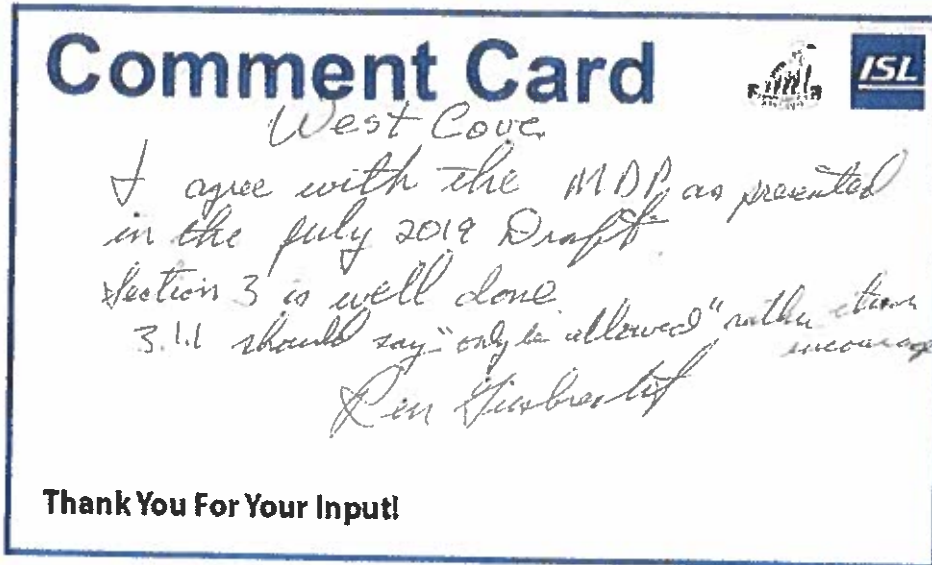 Comment Card
ISL
West Cove
I agree with the MDP as presented
in the July 2019 Draft.
Section 3 is well done
3.1.1 should say "only be allowed" rather than
encourage
Thank You For Your Input!